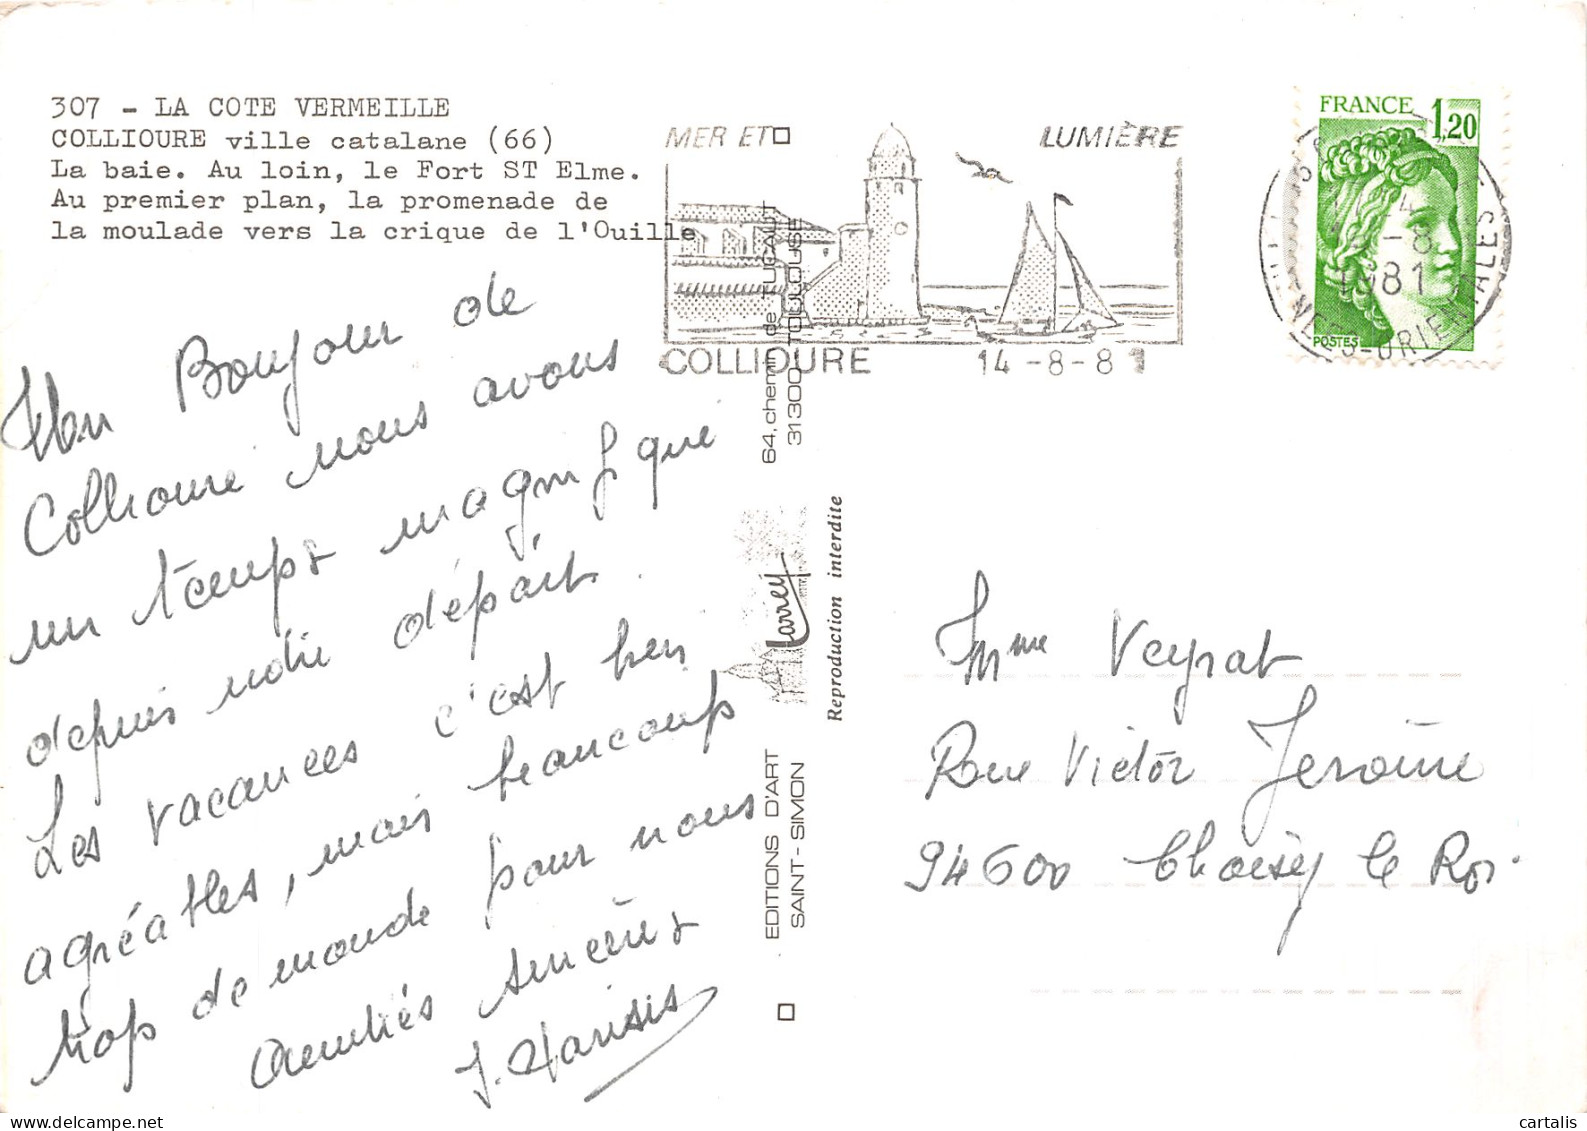 307 - LA COTE VERMEILLE
COLLIOURE ville catalane (66)
La baie. Au loin, le Fort ST Elme.
Au premier plan, la promenade de
la moulade vers la crique de l'Ouille
MER ET LUMIÈRE
COLLIOURE 14-8-81
FRANCE 1,20
POSTES
1981
Un Bonjour de
Collioure nous avons
un temps magnifique
depuis notre départ.
Les vacances c'est bien
agréables, mais beaucoup
trop de monde pour nous
Amitiés sincères
J.
64, chemin de TUCAUT
31300 TOULOUSE
Larrey
Reproduction interdite
EDITIONS D'ART
SAINT-SIMON
Mme Veyrat
Rue Victor Jerome
94600 Choisy le Roi.
cartalis